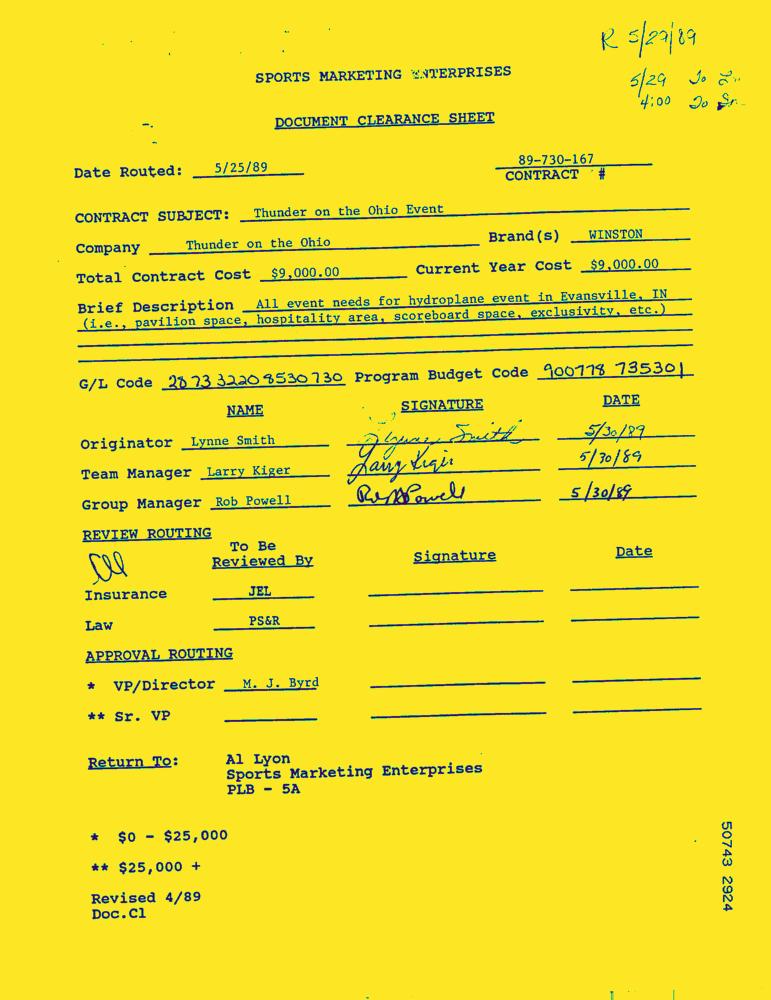 R 5/29/89
SPORTS MARKETING ENTERPRISES
5/29 Jo
4:00 Jo
DOCUMENT CLEARANCE SHEET
Date Routed: 5/25/89
89-730-167
CONTRACT #
CONTRACT SUBJECT: Thunder on the Ohio Event
Company Thunder on the Ohio Brand(s) WINSTON
Total Contract Cost $9,000.00 Current Year Cost $9,000.00
Brief Description All event needs for hydroplane event in Evansville, IN
(i.e., pavilion space, hospitality area, scoreboard space, exclusivity, etc.)
G/L Code 2873 3220 8530730 Program Budget Code 900778 735301
NAME SIGNATURE DATE
Originator Lynne Smith Lynne Smith 5/30/89
Team Manager Larry Kiger Larry Kiger 5/30/89
Group Manager Rob Powell Rob Powell 5/30/89
REVIEW ROUTING
To Be
Reviewed By Signature Date
Insurance JEL
Law PS&R
APPROVAL ROUTING
* VP/Director M. J. Byrd
** Sr. VP
Return To: Al Lyon
Sports Marketing Enterprises
PLB - 5A
* $0 - $25,000
** $25,000 +
Revised 4/89
Doc.Cl
50743 2924